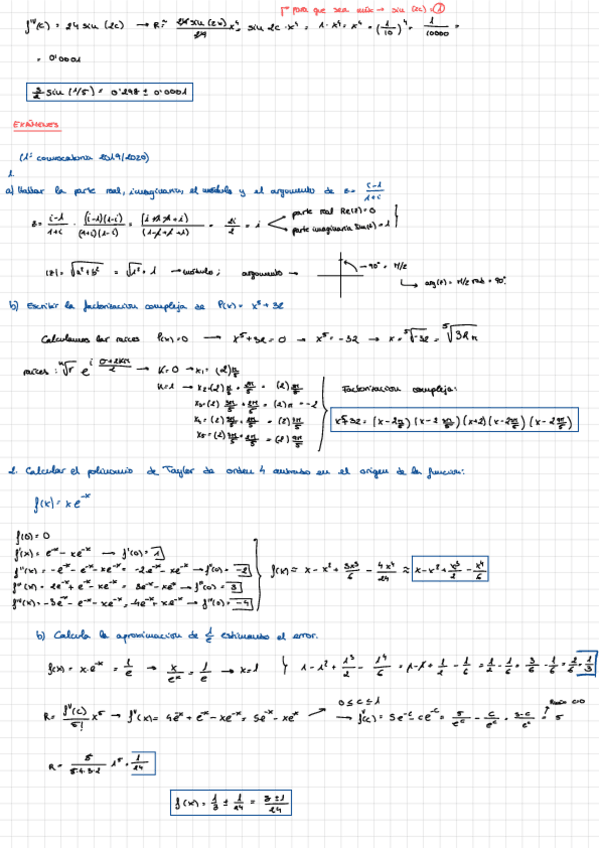 ↱ para que sea máx → sin (2c) = 1
f⁗(c) = 24 sin (2c) → R = 24 sin (2c) / 24 x⁴ = sin 2c · x⁴ = 1 · x⁴ = x⁴ = (1/10)⁴ = 1/10000 =
= 0'0001
3/2 sin (1/5) = 0'298 ± 0'0001
EXÁMENES
(1ª convocatoria 2019/2020)
1.
a) Hallar la parte real, imaginaria, el módulo y el argumento de z = (i-1)/(1+i)
z = (i-1)/(1+i) · (i-1)(1-i)/(1+i)(1-i) = (i+1-1+i)/(1-i+i+1) = 2i/2 = i
parte real Re(z) = 0
parte imaginaria Im(z) = 1
|z| = √(a²+b²) = √1² = 1 → módulo; argumento → 90° = π/2
→ arg(z) = π/2 rad = 90°
b) Escribir la factorización compleja de P(x) = x⁵ + 32
Calculamos las raíces P(x) = 0 → x⁵ + 32 = 0 → x⁵ = -32 → x = ⁵√-32 = ⁵√32 π
raíces: ⁿ√r e^i (σ+2kπ)/2 → k=0 → x₁ = (2) π/5
k=1 → x₂ = (2) π/5 + 2π/5 = (2) 3π/5
x₃ = (2) 3π/5 + 2π/5 = (2) π = -2
x₄ = (2) 5π/5 + 2π/5 = (2) 7π/5
x₅ = (2) 7π/5 + 2π/5 = (2) 9π/5
Factorización compleja:
x⁵+32 = (x - 2 π/5) (x - 2 3π/5) (x+2) (x - 2 7π/5) (x - 2 9π/5)
2. Calcular el polinomio de Taylor de orden 4 centrado en el origen de la función:
f(x) = x e⁻ˣ
f(0) = 0
f'(x) = e⁻ˣ - xe⁻ˣ → f'(0) = 1
f''(x) = -e⁻ˣ - e⁻ˣ - xe⁻ˣ = -2e⁻ˣ - xe⁻ˣ → f''(0) = -2
f'''(x) = 2e⁻ˣ + e⁻ˣ - xe⁻ˣ = 3e⁻ˣ - xe⁻ˣ f'''(0) = 3
f⁗(x) = -3e⁻ˣ - e⁻ˣ - xe⁻ˣ = -4e⁻ˣ + xe⁻ˣ → f⁗(0) = -4
f(x) ≈ x - x² + 3x³/6 - 4x⁴/24 ≈ x - x² + x³/2 - x⁴/6
b) Calcula la aproximación de 1/e estimando el error.
f(x) = x·e⁻ˣ = 1/e → x/eˣ = 1/e → x = 1 } 1 - 1² + 1³/2 - 1⁴/6 = 1 - 1 + 1/2 - 1/6 = 1/2 - 1/6 = 3/6 - 1/6 = 2/6 = 1/3
0 ≤ c ≤ 1
R = fⱽ(c)/5! x⁵ → fⱽ(x) = 4e⁻ˣ + e⁻ˣ - xe⁻ˣ = 5e⁻ˣ - xe⁻ˣ → fⱽ(c) = 5e⁻ᶜ - ce⁻ᶜ = 5/eᶜ - c/eᶜ = 5-c/eᶜ = 5
R = 5/5·4·3·2 1⁵ = 1/24
f(x) = 1/3 ± 1/24 = 8±1/24